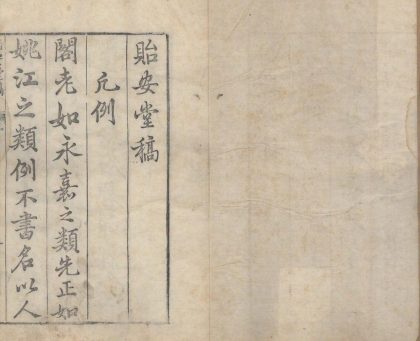 貽安堂稿
凡例
閣老如永嘉之類先正如
姚江之類例不書名以人